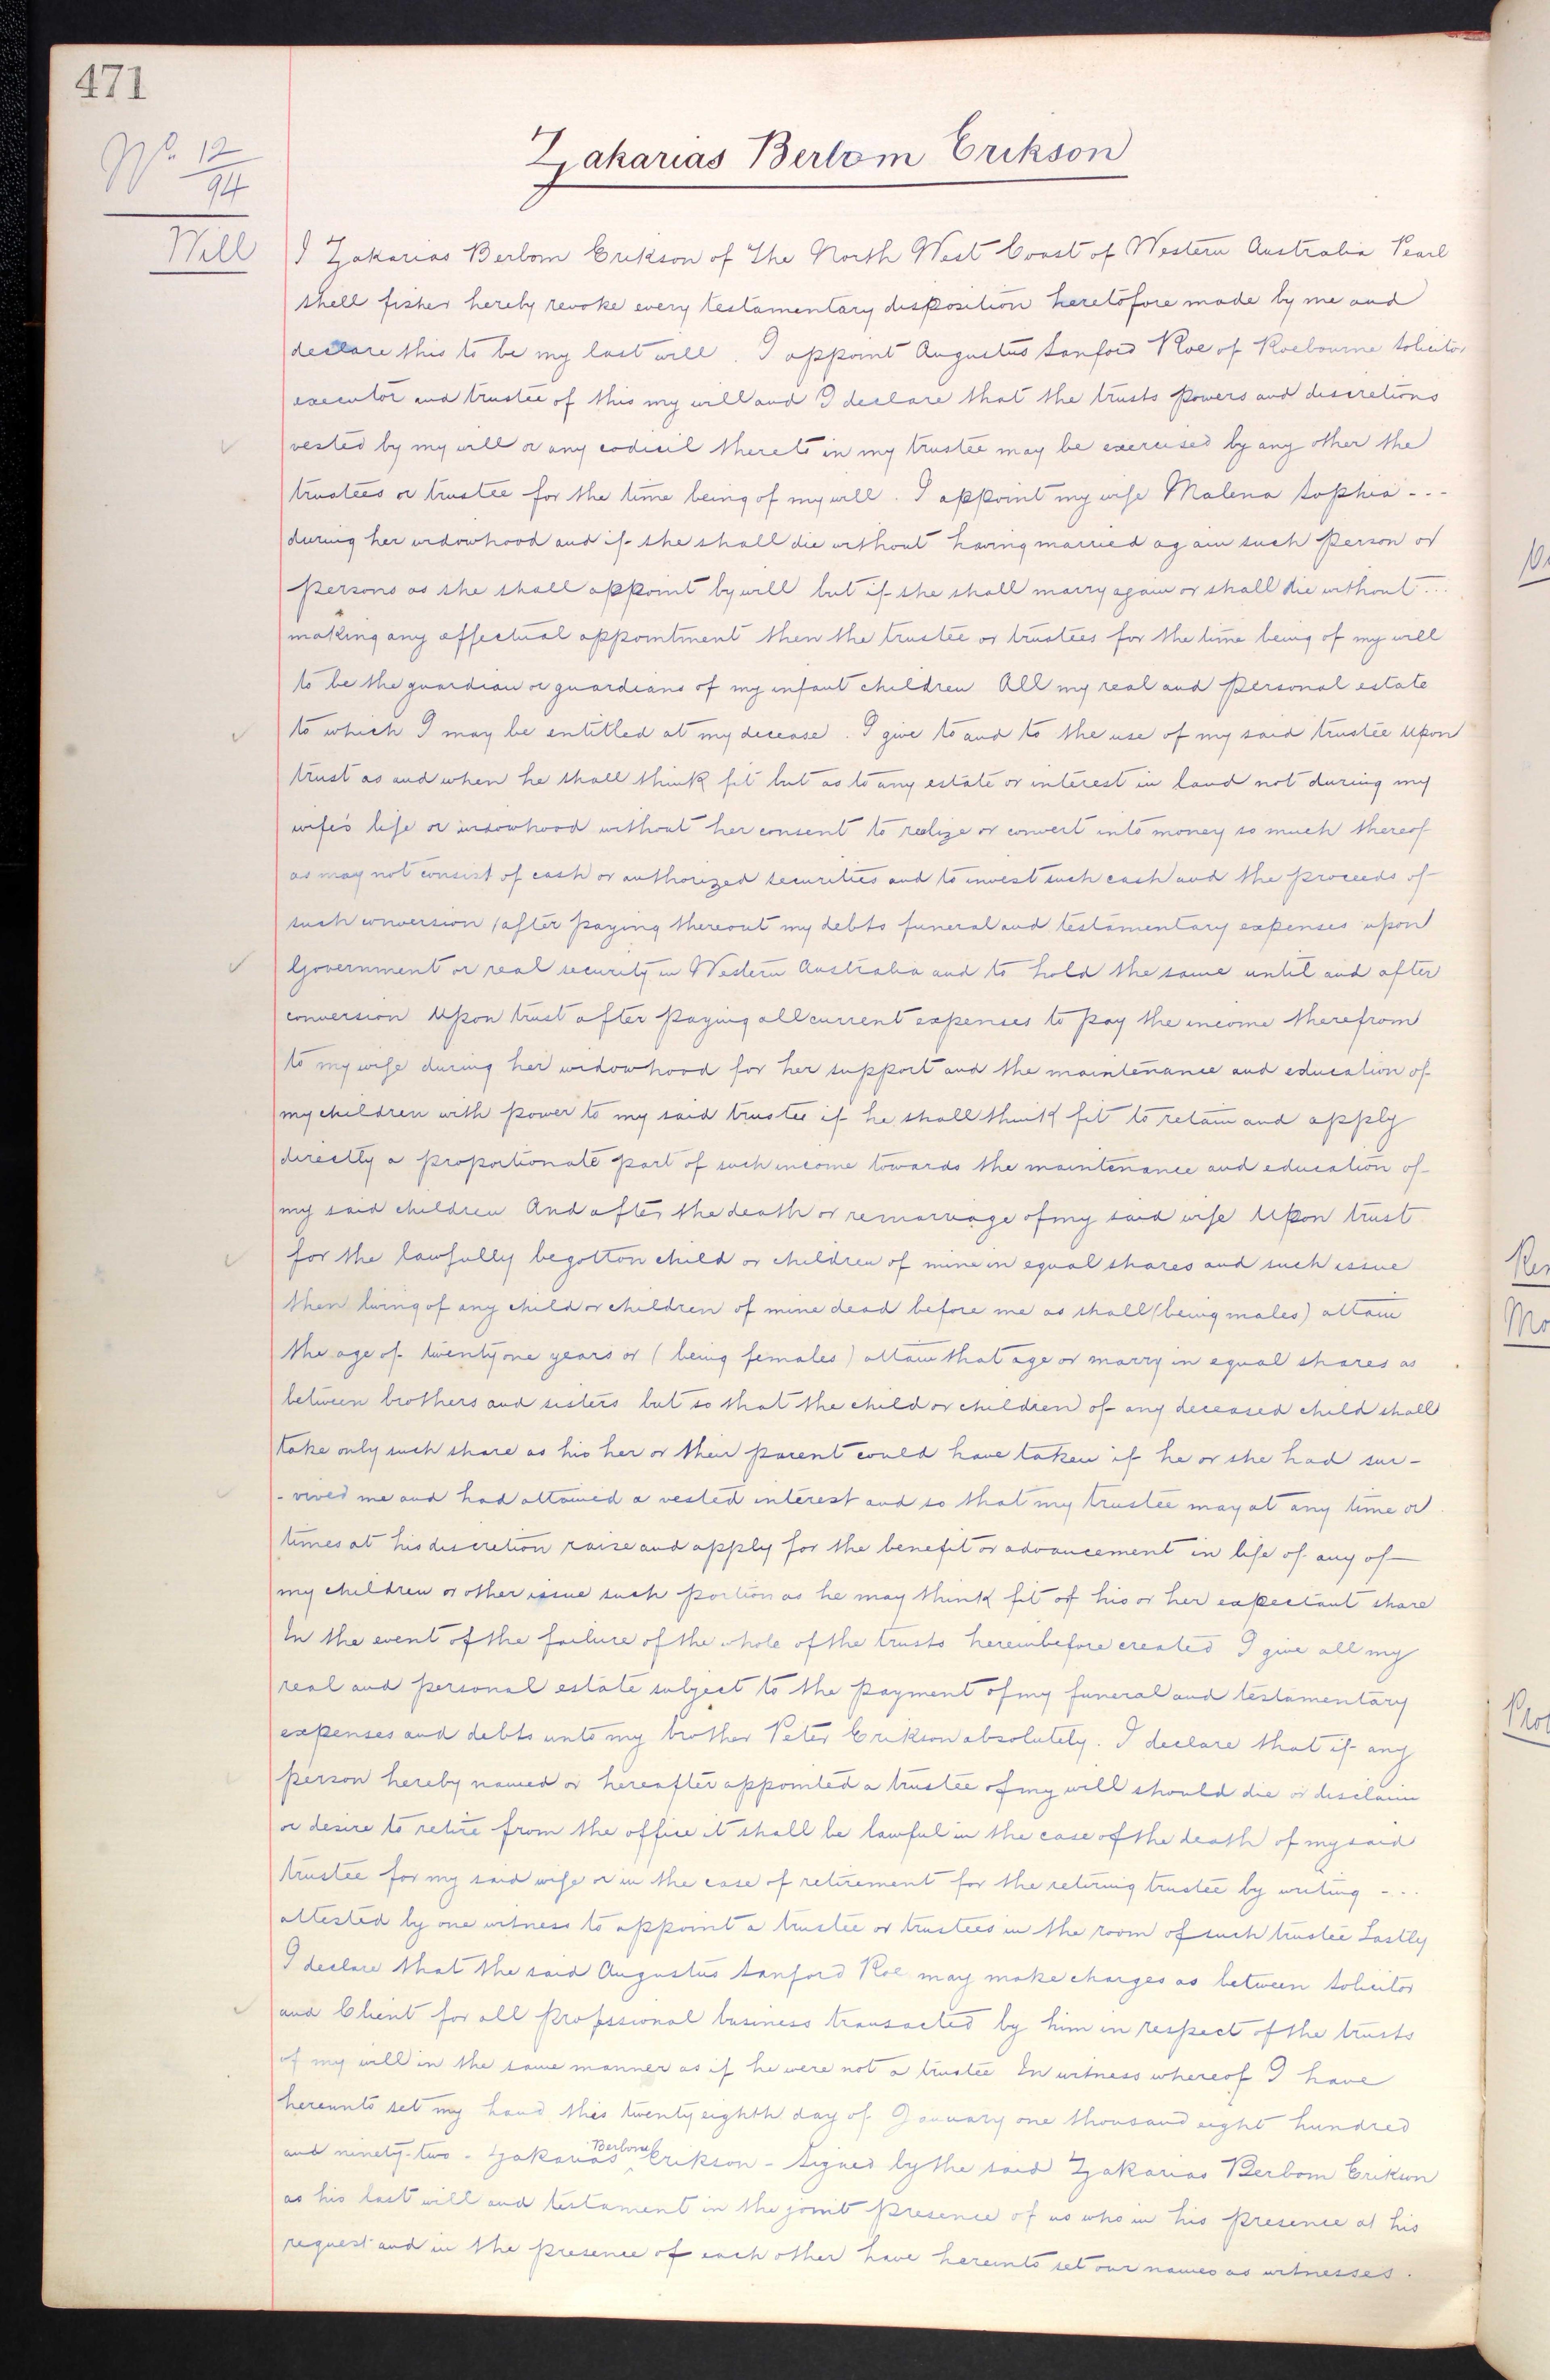 471
No. 12/94
Zakarias Berbom Erikson
Will
I Zakarias Berbom Erikson of The North West Coast of Western Australia Pearl
shell fisher hereby revoke every testamentary disposition heretofore made by me and
declare this to be my last will. I appoint Augustus Sanford Roe of Roebourne Solicitor
executor and trustee of this my will and I declare that the trusts powers and discretions
vested by my will or any codicil thereto in my trustee may be exercised by any other the
trustees or trustee for the time being of my will. I appoint my wife Malena Sophia - - -
during her widowhood and if she shall die without having married again such person or
persons as she shall appoint by will but if she shall marry again or shall die without ...
making any effectual appointment then the trustee or trustees for the time being of my will
to be the guardian or guardians of my infant children All my real and personal estate
to which I may be entitled at my decease. I give to and to the use of my said trustee Upon
trust as and when he shall think fit but as to any estate or interest in land not during my
wife's life or widowhood without her consent to realize or convert into money so much thereof
as may not consist of cash or authorized securities and to invest such cash and the proceeds of
such conversion (after paying thereout my debts funeral and testamentary expenses upon
Government or real security in Western Australia and to hold the same until and after
conversion Upon trust after paying all current expenses to pay the income therefrom
to my wife during her widowhood for her support and the maintenance and education of
my children with power to my said trustee if he shall think fit to retain and apply
directly a proportionate part of such income towards the maintenance and education of
my said children And after the death or remarriage of my said wife Upon trust
for the lawfully begotton child or children of mine in equal shares and such issue
then living of any child or children of mine dead before me as shall (being males) attain
the age of twenty one years or (being females) attain that age or marry in equal shares as
between brothers and sisters but so that the child or children of any deceased child shall
take only such share as his her or their parent could have taken if he or she had sur-
-vived me and had attained a vested interest and so that my trustee may at any time or
times at his discretion raise and apply for the benefit or advancement in life of any of
my children or other issue such portion as he may think fit of his or her expectant share
In the event of the failure of the whole of the trusts hereinbefore created I give all my
real and personal estate subject to the payment of my funeral and testamentary
expenses and debts unto my brother Peter Erikson absolutely. I declare that if any
person hereby named or hereafter appointed a trustee of my will should die or disclaim
or desire to retire from the office it shall be lawful in the case of the death of my said
trustee for my said wife or in the case of retirement for the retiring trustee by writing - - -
attested by one witness to appoint a trustee or trustees in the room of such trustee Lastly
I declare that the said Augustus Sanford Roe may make charges as between Solicitor
and Client for all profssional business transacted by him in respect of the trusts
of my will in the same manner as if he were not a trustee In witness whereof I have
hereunto set my hand this twenty eighth day of January one thousand eight hundred
and ninety-two - Zakarias Berbom Erikson - Signed by the said Zakarias Berbom Erikson
as his last will and testament in the joint presence of us who in his presence at his
request and in the presence of each other have hereunto set our names as witnesses.